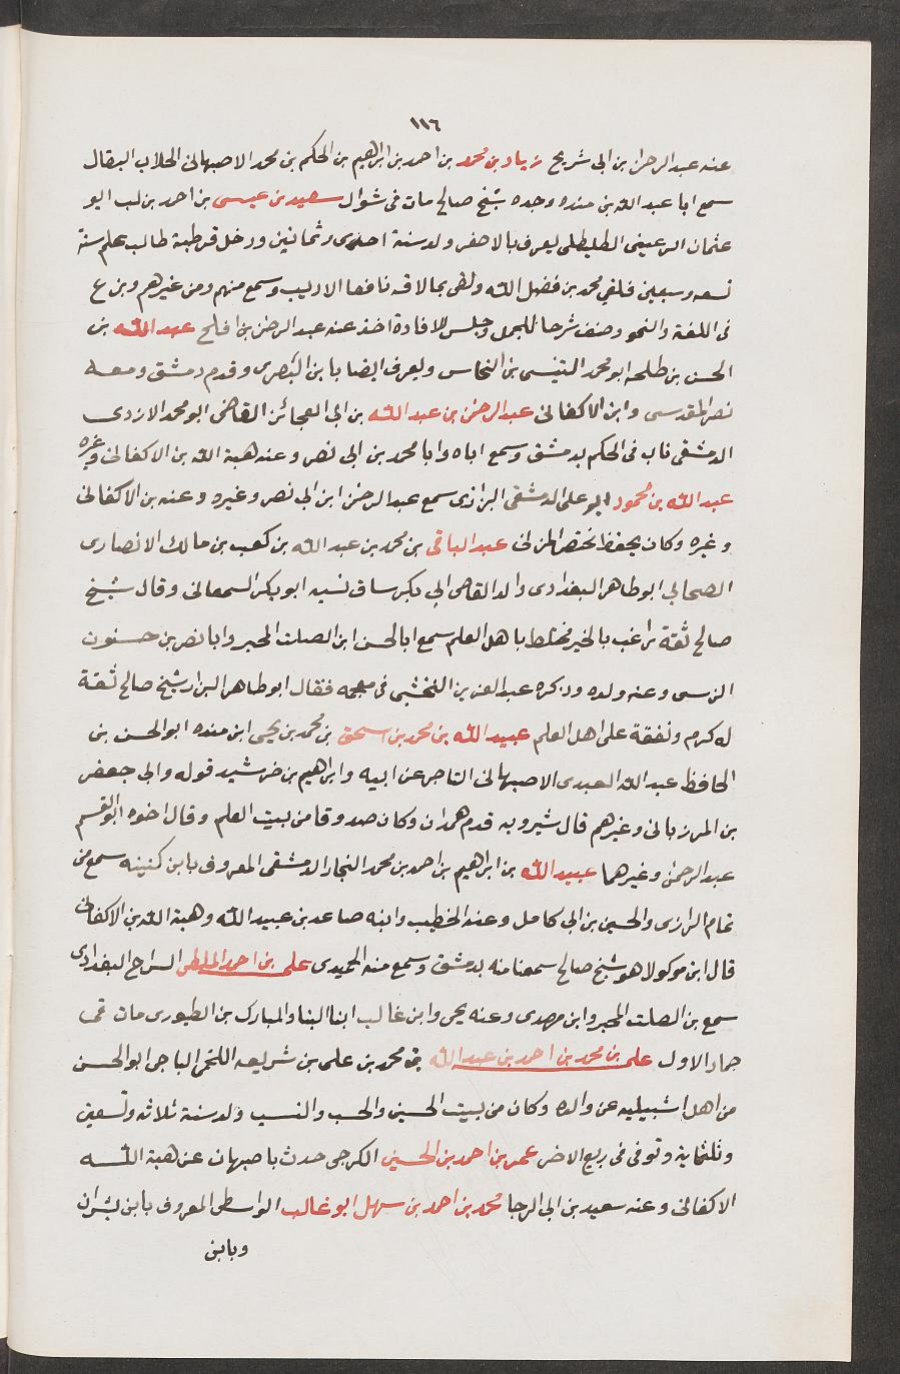 ١١٦
عنه عبد الرحمن بن ابى شريح زياد بن محمد بن احمد بن ابراهيم بن الحكم بن محمد الاصبهانى الجلاب البقال
سمع ابا عبد الله بن منده وجده شيخ صالح مات فى شوال سعيد بن عيسى بن احمد بن لب ابو
عثمان الرعينى الطليطلى يعرف بالاصفر ولد سنة احدى وثمانين ودخل قرطبة طالب علم سنة
تسعه وسبعين فلقي محمد بن فضل الله ولقى بمالاقه نافعا الاديب وسمع منهم ومن غيرهم وبرع
فى اللغة والنحو وصنف شرحا للجمل وجلس للافادة اخذ عنه عبد الرحمن بن افلح عبد الله بن
الحسن بن طلحه ابو محمد التنيسى بن النحاس ويعرف ايضا بابن البصرى وقدم دمشق ومعه
نصر المقدسى وابن الاكفانى عبد الرحمن بن عبد الله بن ابى العجائز القاضى ابو محمد الازدى
الدمشقى ناب فى الحكم بدمشق وسمع اباه وابا محمد بن ابى نصر وعنه هبة الله بن الاكفانى وغيره
عبد الله بن محمود ابو على الدمشقى البرازى سمع عبد الرحمن ابن ابى نصر وغيره وعنه بن الاكفانى
وغيره وكان يحفظ مختصر المزنى عبد الباقى بن محمد بن عبد الله بن كعب بن مالك الانصارى
الصحابي ابو طاهر البغدادى والد القاضى ابي بكر ساق نسبه ابو بكر السمعانى وقال شيخ
صالح ثقة راغب بالخير مختلط باهل العلم سمع ابا الحسن ابن الصلت المجبر وابا نصر بن حسنون
النرسى وعنه ولده وذكره عبد العزيز النخشبى فى معجمه فقال ابو طاهر البزار شيخ صالح ثقة
له كرم ونفقة على اهل العلم عبيد الله بن محمد بن اسحق بن محمد بن يحيى ابن منده ابو الحسن بن
الحافظ عبد الله العبدى الاصبهانى التاجر عن ابيه وابراهيم بن خرشيد قوله وابى جعفر
بن المرزبانى وغيرهم قال شيرويه قدم همدان وكان صدوقا من بيت العلم وقال اخوه ابو القسم
عبد الرحمن وغيرهما عبيد الله بن ابراهيم بن احمد بن محمد النجار الدمشقى المعروف بابن كنينه سمع من
تمام الرازى والحسين بن ابى كامل وعنه الخطيب وابنه صاعد بن عبيد الله وهبة الله بن الاكفانى
قال ابن موكولا هو شيخ صالح سمعنا منه بدمشق وسمع منه الحميدى على بن احمد الملطى السراج البغدادى
سمع بن الصلت المجبر وابن مهدى وعنه يحيى وابن غالب ابنا البنا والمبارك بن الطيورى مات فى
جماد الاول على بن محمد بن احمد بن عبد الله بن محمد بن على بن شريعه اللخمى الباجى ابو الحسن
من اهل اشبيليه عن والده وكان من بيت الحسين والحسب والنسب ولد سنة ثلاثه وتسعين
وثلثماية وتوفى فى ربيع الاخر عمر بن احمد بن الحسين الكرجى حدث باصبهان عن هبة الله
الاكفانى وعنه سعيد بن ابى الرجا محمد بن احمد بن سهل ابو غالب الواسطى المعروف بابن بشران
وبابن